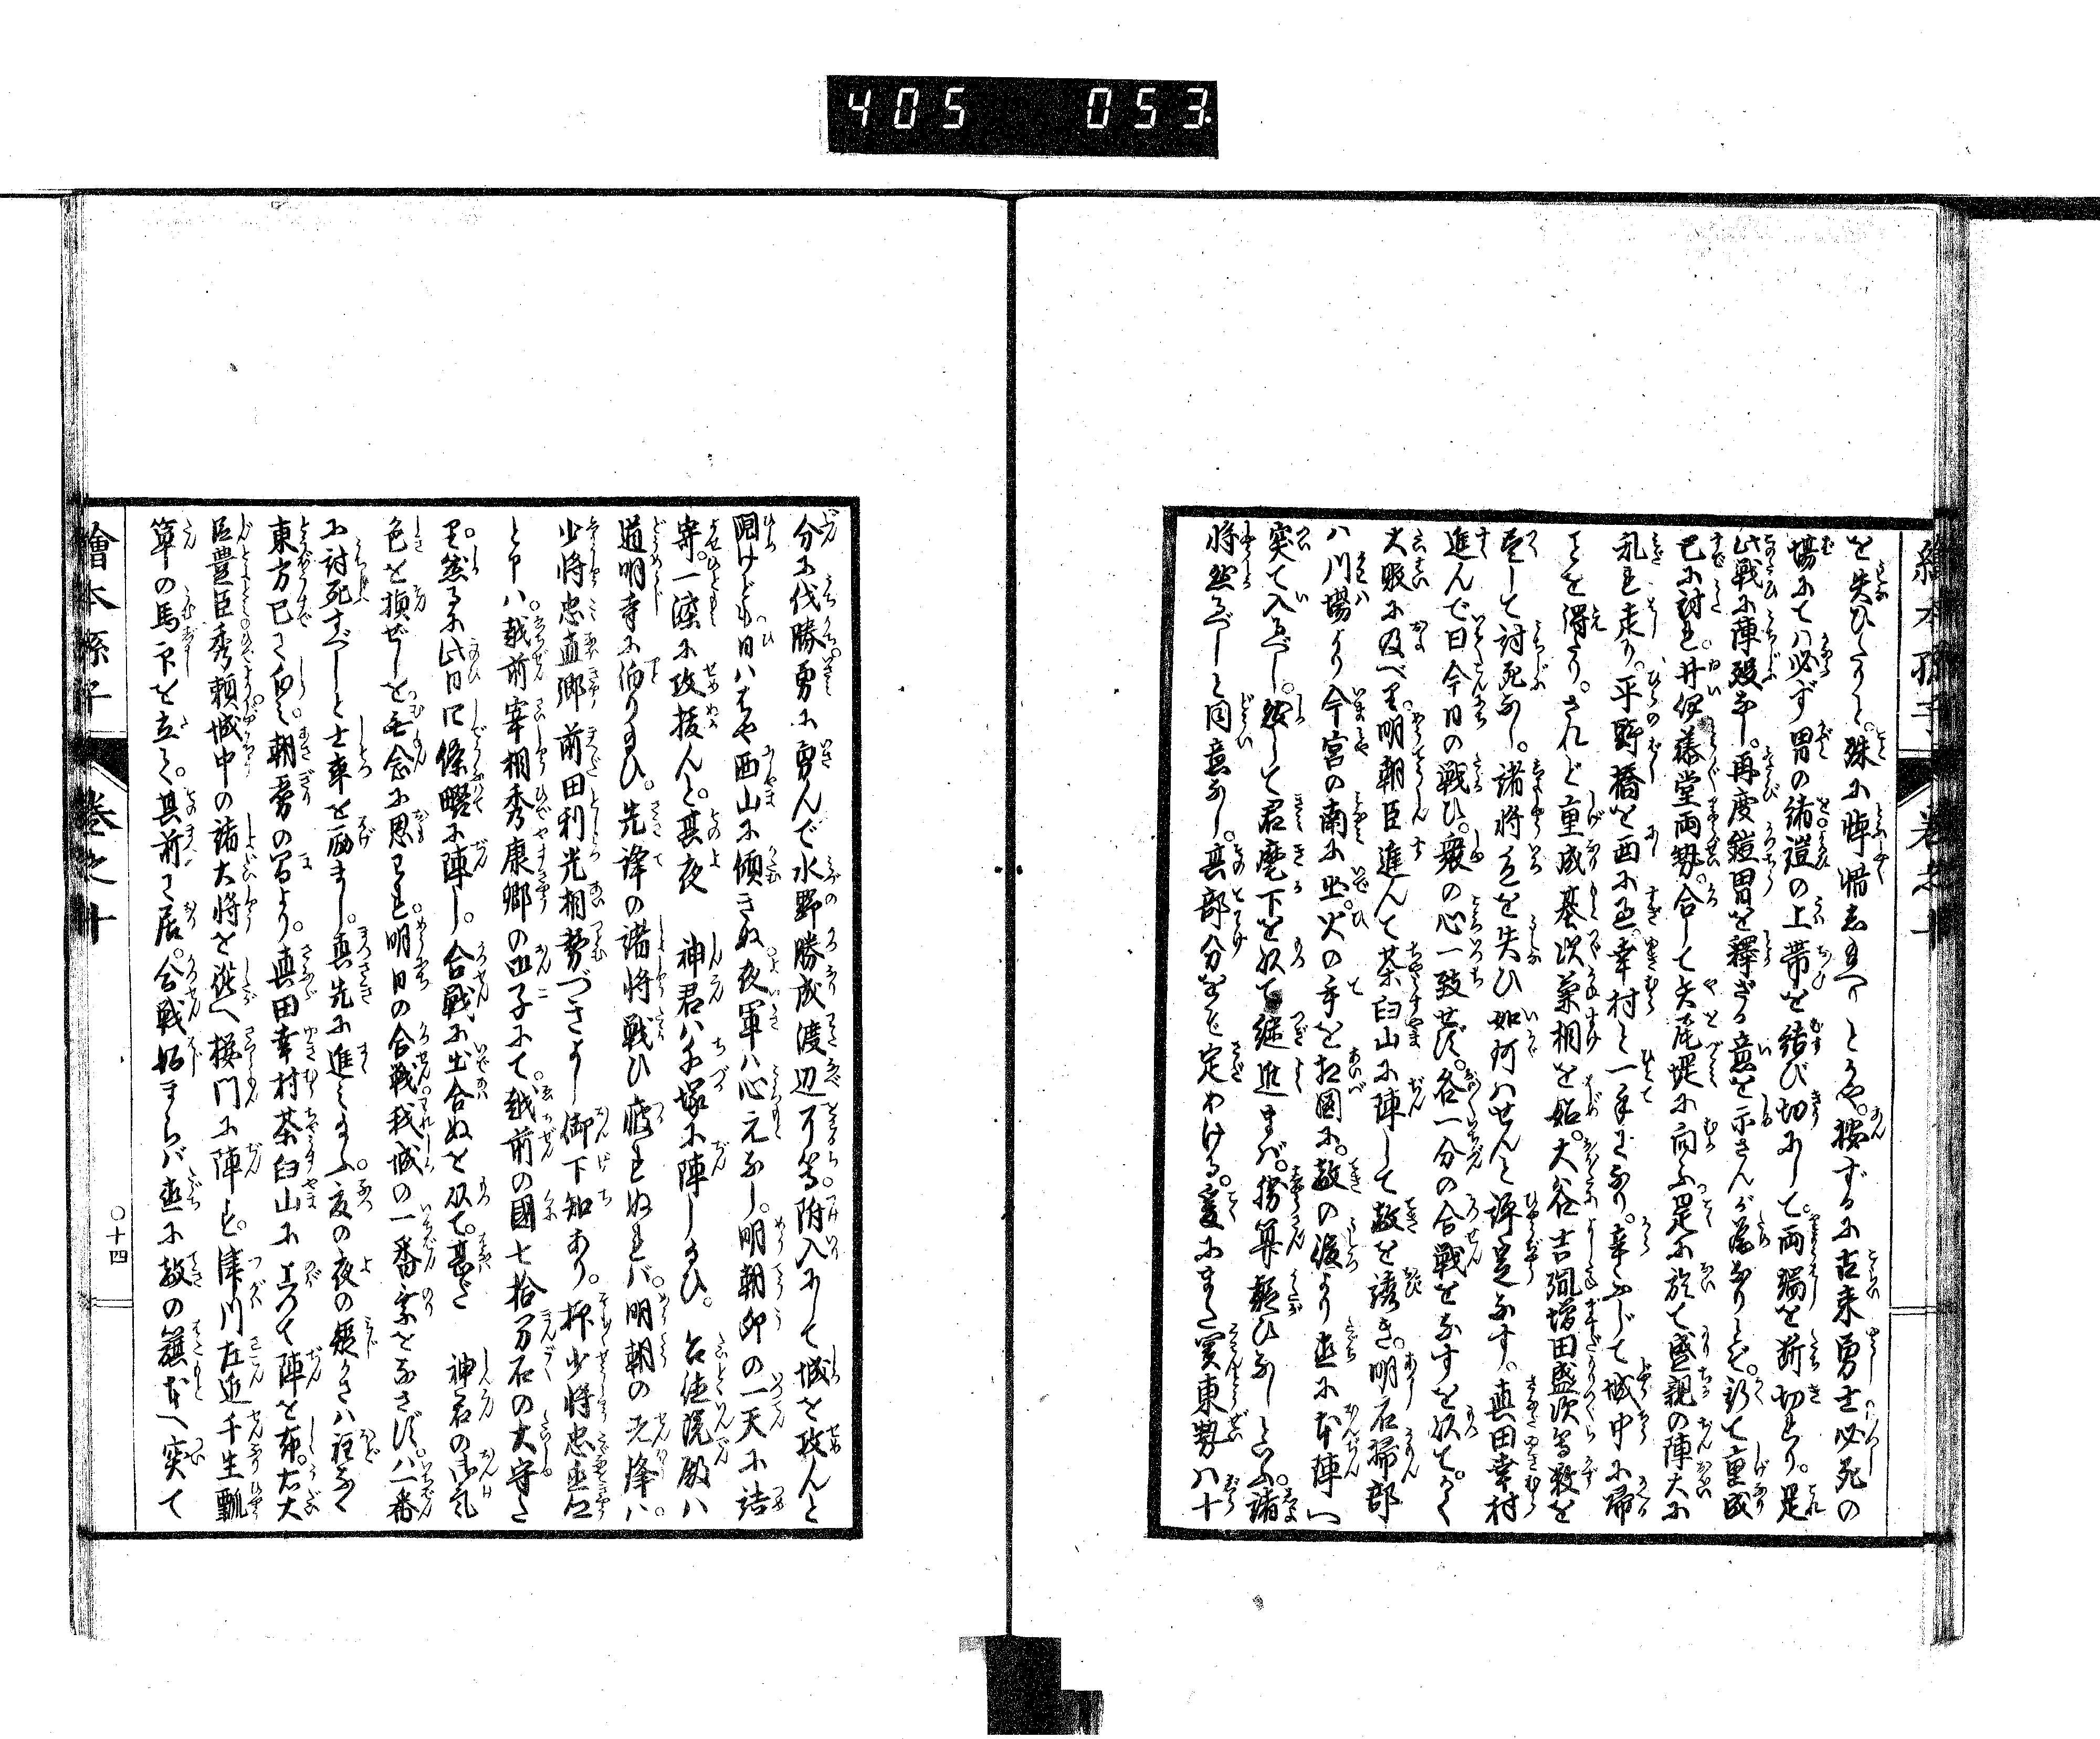 405 053
繪本孫子 巻之十
を失ひたりと。殊に悼惜し玉へりとかや。按ずるに古来勇士必死の
場にては必ず冑の緒鎧の上帯を結び切にして。両端を断切り。是
此戦に陣歿し。再度鎧冑を釋ざる意を示さんが為なりとぞ。斯て重成
已に討れ。井伊藤堂両勢。合して矢尾堤に向ふ是に於て盛親の陣大に
乱れ走り。平野橋を西に過。幸村と一手になり。辛ふじて城中に帰
ことを得たり。されど重成基次薬相を始。大谷吉胤増田盛次等数を
尽して討死し。諸将色を失ひ如何はせんと評定なす。真田幸村
進んで曰今日の戦ひ。衆の心一致せず。各一分の合戦をなすを以て。かく
大敗に及べり。明朝臣進んて茶臼山に陣して敵を誘き。明石掃部
ハ川場より今宮の南に出。火の手を相圖に。敵の後より直に本陣へ
突て入べし。然して君麾下を以て継進まば。勝算疑ひなしといふ。諸
将然るべしと同意なし。其部分をぞ定めける。爰にまた関東勢八十
分に伐勝勇に勇んで水野勝成渡辺可等附入にして城を攻んと
鬩けども日ハはや西山に傾きぬ夜軍ハ心元なし。明朝卯の一天に詰
寄。一際に攻抜んと。其夜 神君ハ千塚に陣し給ひ。台徳院殿ハ
道明寺に泊り給ひ。先鋒の諸将戦ひ疲れぬれバ。明朝の先鋒ハ。
少将忠直卿前田利光相勢づさよし御下知あり。抑少将忠直卿
と申ハ。越前宰相秀康卿の御子にて。越前の國七拾万石の大守た
り。然るに此日四條畷に陣し。合戦に出合ぬを以て。甚だ 神君の御氣
色を損ぜしを無念に思ひ玉ひ。明日の合戦我城の一番乗をなさずバ一番
に討死すべしと士卒を励まし。真先に進み給ふ。夏の夜の短かさハ程なく
東方已に白み。朝霧の間より。真田幸村茶臼山に上つて陣を布。右大
臣豊臣秀頼城中の諸大将を従へ桜門に陣し。津川左近千生瓢
箪の馬印を立て。其前に居。合戦始まらバ直に敵の籏本へ突て
繪本孫子 巻之十 〇十四